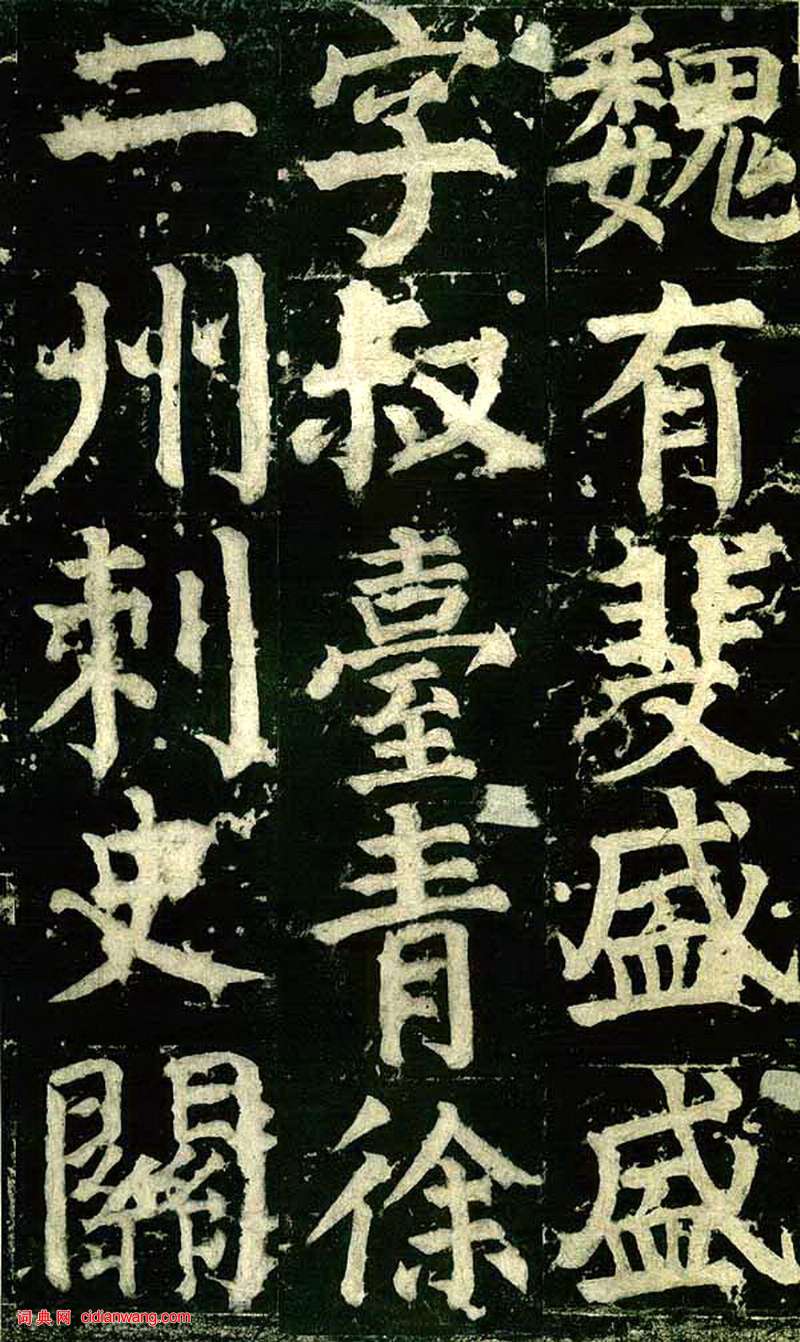 魏有斐盛盛
字叔臺青徐
二州刺史關
词典网 cidianwang.com